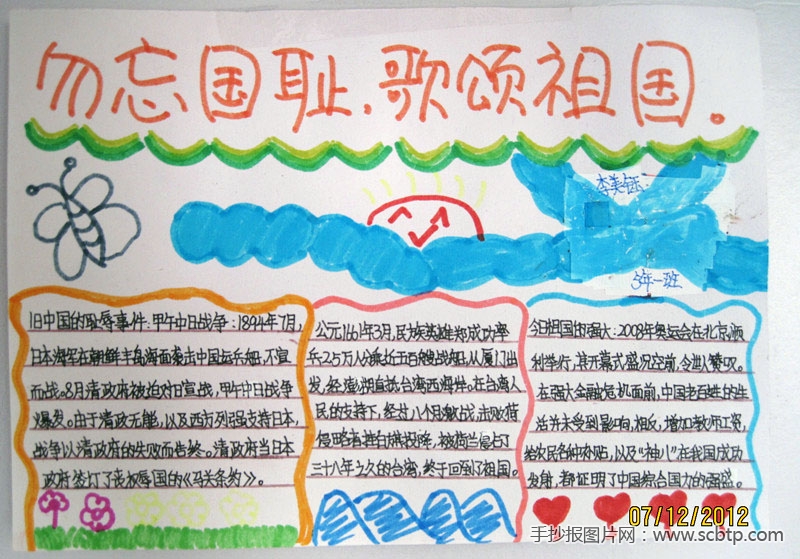 勿忘国耻，歌颂祖国。
李美钰
5年一班
旧中国的耻辱事件：甲午中日战争：1894年7月，
日本海军在朝鲜丰岛海面袭击中国运兵船，不宣
而战。8月清政府被迫对日宣战，甲午中日战争
爆发。由于清政无能，以及西方列强支持日本，
战争以清政府的失败而告终。清政府当日本
政府签订了丧权辱国的《马关条约》。
公元1661年3月，民族英雄郑成功率
兵2.5万人分乘长五百艘战船，从厦门出
发，经澎湖直抵台湾西海岸。在台湾人
民的支持下，经过八个月激战，击败荷
侵略者举白旗投降，被荷兰侵占
三十八年之久的台湾，终于回到了祖国。
今日祖国的强大：2008年奥运会在北京顺
利举行，其开幕式盛况空前，令世人赞叹。
在强大金融危机面前，中国老百姓的生
活并未受到影响，相反，增加教师工资，
给农民各种补贴，以及“神八”在我国成功
发射，都证明了中国综合国力的强盛。
07/12/2012
手抄报图片网：www.scbtp.com